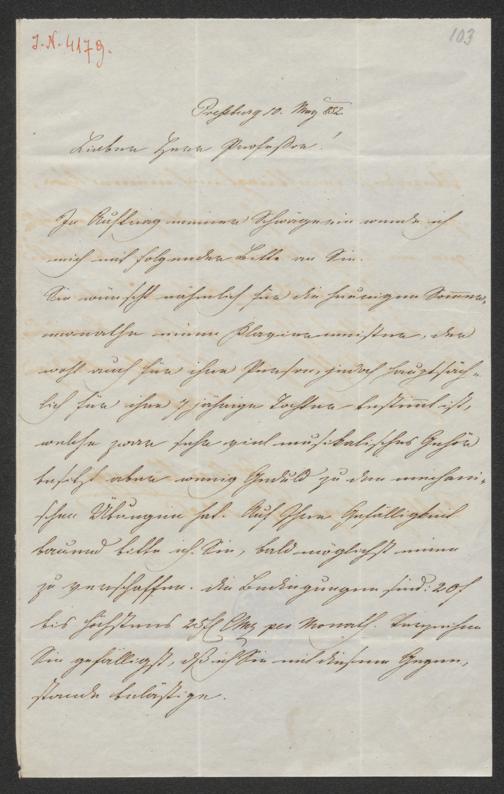 J.N. 4179.
103
Preßburg 10. May 852
Lieber Herr Professor!
Im Auftrag meiner Schwägerin wende ich
mich mit folgender Bitte an Sie.
Sie wünscht nähmlich für die heurigen Sommer-
monathe einen Klaviermeister, der
wohl auch für ihre Person, jedoch hauptsäch-
lich für ihre 7 jährige Tochter bestimmt ist,
welche zwar sehr viel musikalisches Gehör
besitzt aber wenig Geduld zu den mechani-
schen Übungen hat. Auf Ihre Gefälligkeit
bauend bitte ich Sie, bald möglichst einen
zu verschaffen. Die Bedingungen sind: 20 f
bis höchstens 25 f CMz per Monath. Verzeihen
Sie gefälligst, dß ich Sie mit diesem Gegen-
stande belästige.